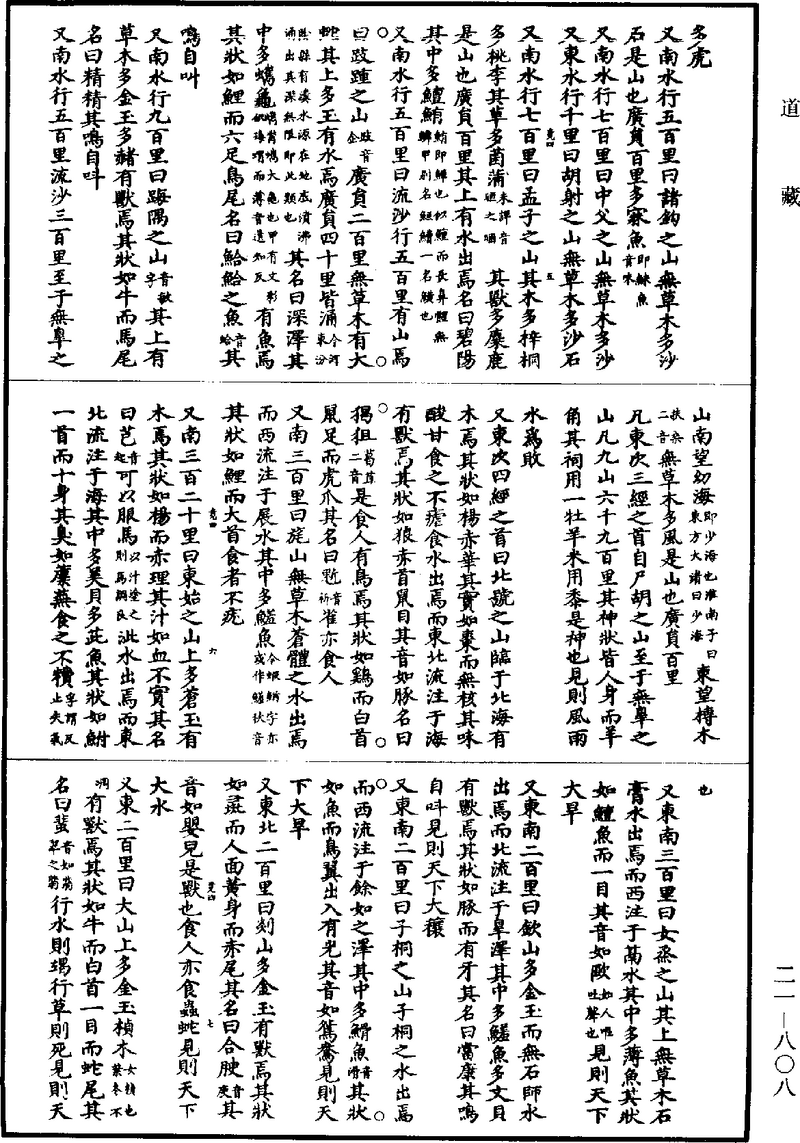 道藏
多虎
又南水行五百里曰諸鈎之山無草木多沙
石是山也廣員百里多寐魚即鮇魚音味
又南水行七百里曰中父之山無草木多沙
又東水行千里曰胡射之山無草木多沙石
又南水行七百里曰孟子之山其木多梓桐
多桃李其草多菌蒲未詳音其獸多麋鹿
是山也廣員百里其上有水出焉名曰碧陽
其中多鱣鮪鮪即鱏也似鱣而長鼻體無鱗甲別名一名鱑也
又南水行五百里曰流沙行五百里有山焉
曰跂踵之山跂音企廣員二百里無草木有大
蛇其上多玉有水焉廣員四十里皆涌今河東汾
陰縣有瀵水源在地底濆沸涌出其深無限即此類也其名曰深澤其
中多蠵龜蠵觜蠵大龜也甲有文彩似瑇瑁而薄音遺知反有魚焉
其狀如鯉而六足鳥尾名曰鮯鮯之魚音蛤其
鳴自叫
又南水行九百里曰踇隅之山音敏字其上有
草木多金玉多赭有獸焉其狀如牛而馬尾
名曰精精其鳴自叫
又南水行五百里流沙三百里至于無臯之
山南望幼海即少海也淮南子曰東方大渚曰少海東望榑木
扶桑二音無草木多風是山也廣員百里
凡東次三經之首自尸胡之山至于無臯之
山凡九山六千九百里其神狀皆人身而羊
角其祠用一牡羊米用黍是神也見則風雨
水爲敗
又東次四經之首曰北號之山臨于北海有
木焉其狀如楊赤華其實如棗而無核其味
酸甘食之不瘧食水出焉而東北流注于海
有獸焉其狀如狼赤首鼠目其音如豚名曰
猲狙葛苴二音是食人有鳥焉其狀如鷄而白首
鼠足而虎爪其名曰鬿音祈雀亦食人
又南三百里曰旄山無草木蒼體之水出焉
而西流注于展水其中多鱃魚今蝦鰌字亦或作鱃秋音
其狀如鯉而大首食者不疣
又南三百二十里曰東始之山上多蒼玉有
木焉其狀如楊而赤理其汁如血不實其名
曰芑音起可以服馬以汁塗之則馬調良泚水出焉而東
北流注于海其中多美貝多茈魚其狀如鮒
一首而十身其臭如蘪蕪食之不𥜥孚謂反止失氣
也
又東南三百里曰女烝之山其上無草木石
膏水出焉而西注于鬲水其中多薄魚其狀
如鱣魚而一目其音如歐如人嘔吐聲也見則天下
大旱
又東南二百里曰欽山多金玉而無石師水
出焉而北流注于臯澤其中多鱃魚多文貝
有獸焉其狀如豚而有牙其名曰當康其鳴
自叫見則天下大穰
又東南二百里曰子桐之山子桐之水出焉
而西流注于餘如之澤其中多䱻魚音滑其狀
如魚而鳥翼出入有光其音如鴛鴦見則天
下大旱
又東北二百里曰剡山多金玉有獸焉其狀
如彘而人面黃身而赤尾其名曰合㺊音庾其
音如嬰兒是獸也食人亦食蟲蛇見則天下
大水
又東二百里曰大山上多金玉楨木女楨也葉冬不
凋有獸焉其狀如牛而白首一目而蛇尾其
名曰蜚音如翡翠之翡行水則竭行草則死見則天
二一—八〇八